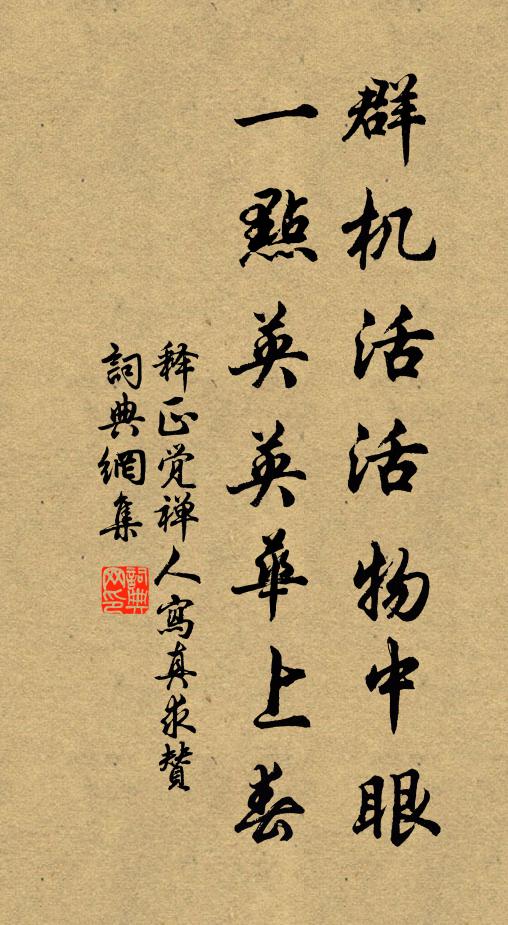 群机活活物中眼
一點英英華上春
释正觉禅人寫真求贊
詞典網集
詞典网印